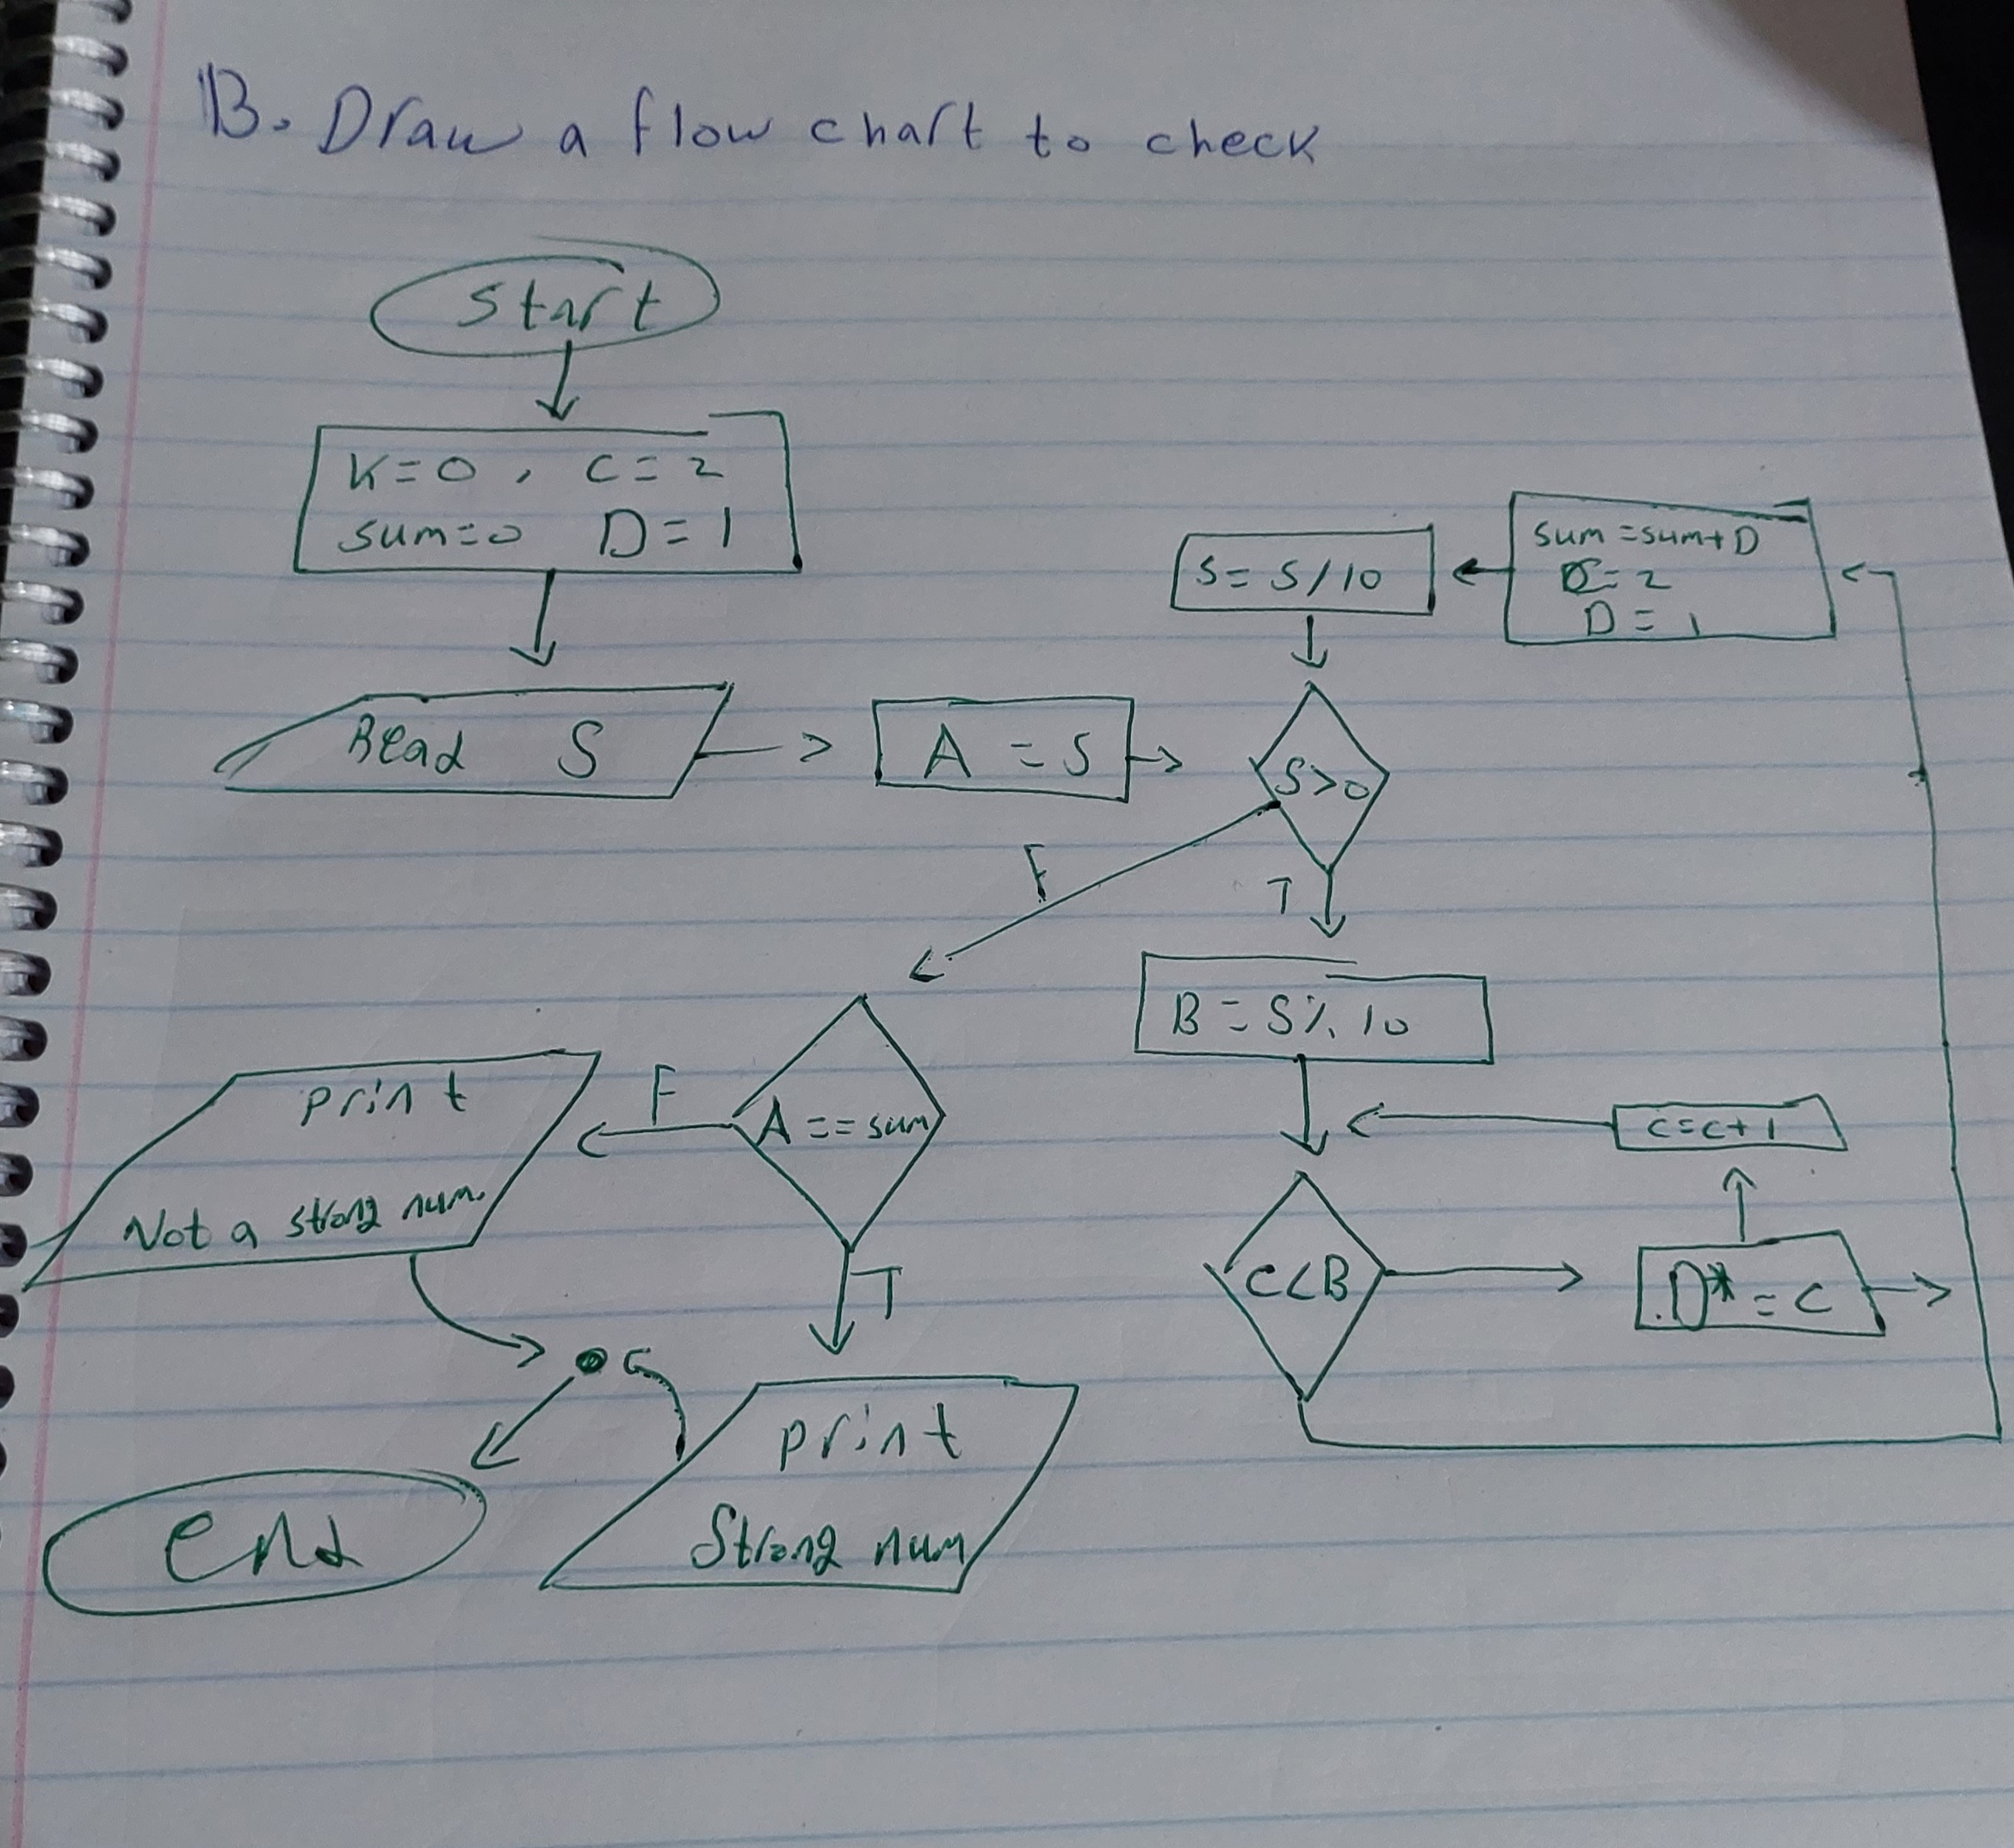 B. Draw a flow chart to check
Start
K=0, C=2
sum=0 D=1
Read S
A = S
S>0
F
T
S= S/10
sum=sum+D
C=2
D=1
B=S% 10
C<B
D*=C
C=C+1
A==sum
F
T
print
Not a strong num.
print
Strong num
End